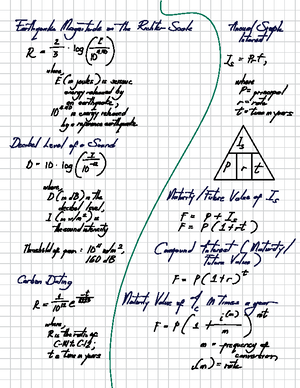 Earthquake Magnitude on the Richter Scale
R = 2/3 · log(E/10^4.40)
where,
E (in joules) is seismic
energy released by
an earthquake,
10^4.40 is energy released
by a reference earthquake
Decibel Level of a Sound
D = 10 · log(I/10^-12)
where,
D (in dB) is the
decibel level,
I (in w/m²) is
the sound intensity
Threshold of pain:
w/m²,
160 dB
Carbon Dating
R =
where,
R is the ratio of
C-14 to C-12,
t = time in years
Annual Simple
Interest
Is = Prt,
where
P = principal
r = rate
t = time in years
Is
P r t
Maturity/Future Value of Is
F = P + Is
F = P(1+rt)
Compound Interest (Maturity/
Future Value)
F = P(1+r)^t
Maturity Value of Ic M Times a year
F = P(1 + i^(m)/m)^mt
m = frequency of
conversion,
i(m) = rate